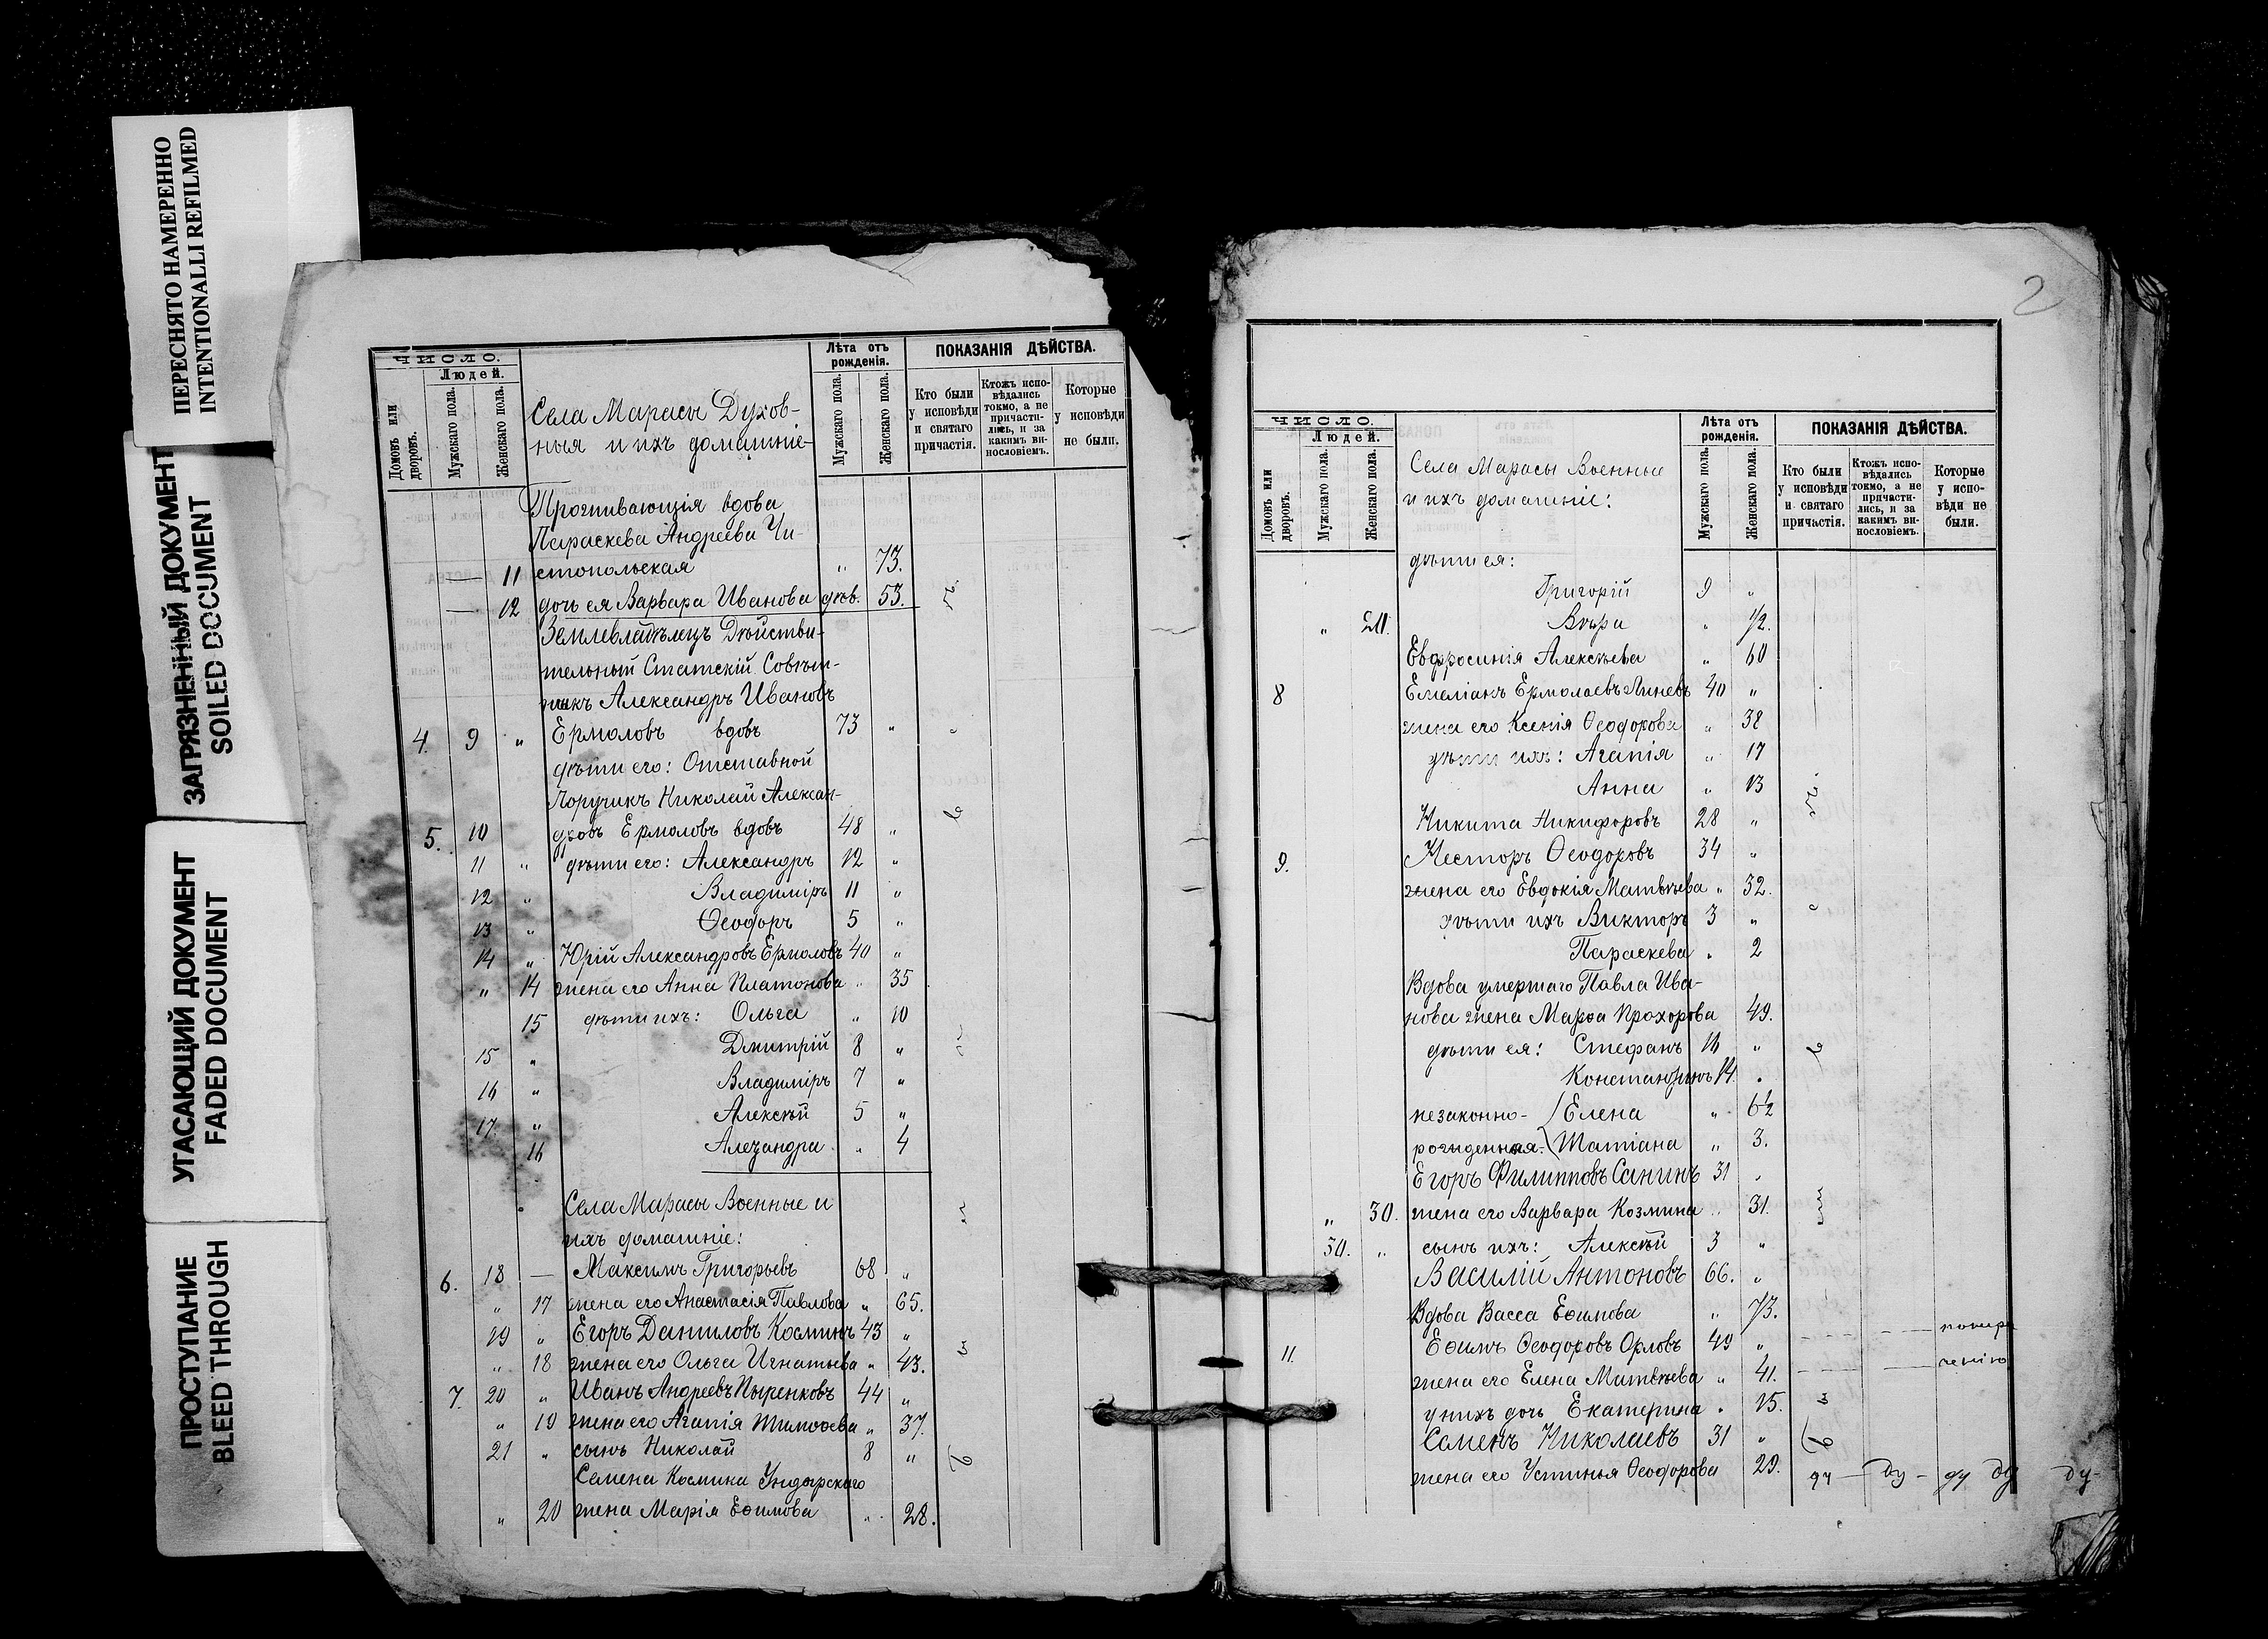 ПЕРЕСНЯТО НАМЕРЕННО
INTENTIONALLI REFILMED
ЗАГРЯЗНЕННЫЙ ДОКУМЕНТ
SOILED DOCUMENT
УГАСАЮЩИЙ ДОКУМЕНТ
FADED DOCUMENT
ПРОСТУПАНИЕ
BLEED THROUGH
ЧИСЛО.
Людей.
Домовъ или дворовъ.
Мужскаго пола.
Женскаго пола.
Села Марасы Духов-
ныя и ихъ домашніе
Лѣта отъ рожденія.
Мужскаго пола.
Женскаго пола.
ПОКАЗАНІЯ ДѢЙСТВА.
Кто были у исповѣди и святаго причастія.
Ктожъ испо-вѣдались токмо, а не причасти-лись, и за какимъ ви-нословіемъ.
Которые у исповѣди не были.
Проживающія вдова
Параскева Андреева Чи-
— 11 стопольская „ 73.
— 12 дочь ея Варвара Иванова дѣв. 53.
Землевладѣлецъ Дѣйстви-
тельный Статскій Совѣт-
никъ Александръ Ивановъ
4. 9 „ Ермоловъ вдовъ 73 „
дѣти его: Отставной
Поручикъ Николай Алексан-
5. 10 дровъ Ермоловъ вдовъ 48 „
11 „ дѣти его: Александръ 12 „
12 „ Владиміръ 11 „
13 „ Ѳеодоръ 5 „
14 „ Юрій Александровъ Ермоловъ 40 „
„ 14 жена его Анна Платонова „ 35
15 дѣти ихъ: Ольга „ 10
15 „ Дмитрій 8 „
16 „ Владиміръ 7 „
17. „ Алексѣй 5 „
16 Алезандра „ 4
Села Марасы Военные и
ихъ домашніе:
6. 18 — Максимъ Григорьевъ 68 „
„ 17 жена его Анастасія Павлова „ 65.
19 „ Егоръ Даниловъ Косминъ 43 „
„ 18 жена его Ольга Игнатьева „ 43.
7. 20 „ Иванъ Андреевъ Пыренковъ 44 „
„ 19 жена его Агапія Тимоѳеева „ 37.
21 „ сынъ Николай 8 „
Семена Космина Ундорскаго
„ 20 жена Марія Еѳимова „ 28.
2
ЧИСЛО.
Людей.
Домовъ или дворовъ.
Мужскаго пола.
Женскаго пола.
Села Марасы Военные
и ихъ домашніе:
Лѣта отъ рожденія.
Мужскаго пола.
Женскаго пола.
ПОКАЗАНІЯ ДѢЙСТВА.
Кто были у исповѣди и святаго причастія.
Ктожъ испо-вѣдались токмо, а не причасти-лись, и за какимъ ви-нословіемъ.
Которые у испо-вѣди не были.
дѣти ея:
Григорій 9 „
„ Вѣра „ 1/2.
Евфросинія Алексѣева „ 60
8 Емеліанъ Ермолаевъ Линевъ 40 „
жена его Ксенія Ѳеодорова „ 38
дѣти ихъ: Агапія „ 17
Анна „ 13
Никита Никифоровъ 28 „
9. Несторъ Ѳеодоровъ 34 „
жена его Евдокія Матвѣева „ 32.
дѣти ихъ Викторъ 3 „
Параскева „ 2
Вдова умершаго Павла Ива-
нова жена Марѳа Прохорова 49.
дѣти ея: Стефанъ 16 „
Константинъ 14. „
незаконно- Елена „ 6½
рожденная. Татіана „ 3.
Егоръ Филипповъ Санинъ 31 „
„ 30. жена его Варвара Козмина „ 31.
30. „ сынъ ихъ: Алексѣй 3 „
Василій Антоновъ 66. „
Вдова Васса Еѳимова „ 73.
11. Еѳимъ Ѳеодоровъ Орловъ 49 „
жена его Елена Матвѣева „ 41.
у нихъ дочь Екатерина „ 15.
Семенъ Николаевъ 31 „
жена его Устинья Ѳеодорова 29.